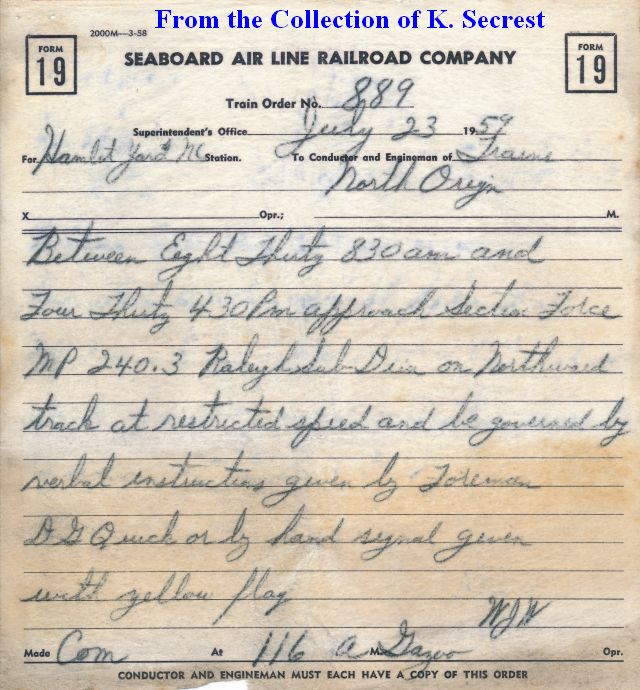 From the Collection of K. Secrest
2000M—3-58
FORM 19
SEABOARD AIR LINE RAILROAD COMPANY
FORM 19
Train Order No. 889
Superintendent's Office July 23 1959
For Hamlet Yard NC Station. To Conductor and Engineman of Trains
North Origin
X Opr.; M.
Between Eight Thirty 830am and
Four Thirty 430Pm approach Section Force
MP 240.3 Raleigh Sub Divn on Northward
track at restricted speed and be governed by
verbal instructions given by Foreman
D G Quick or by hand signal given
with yellow flag
WJW
Made Com At 116 A M. Opr.
CONDUCTOR AND ENGINEMAN MUST EACH HAVE A COPY OF THIS ORDER